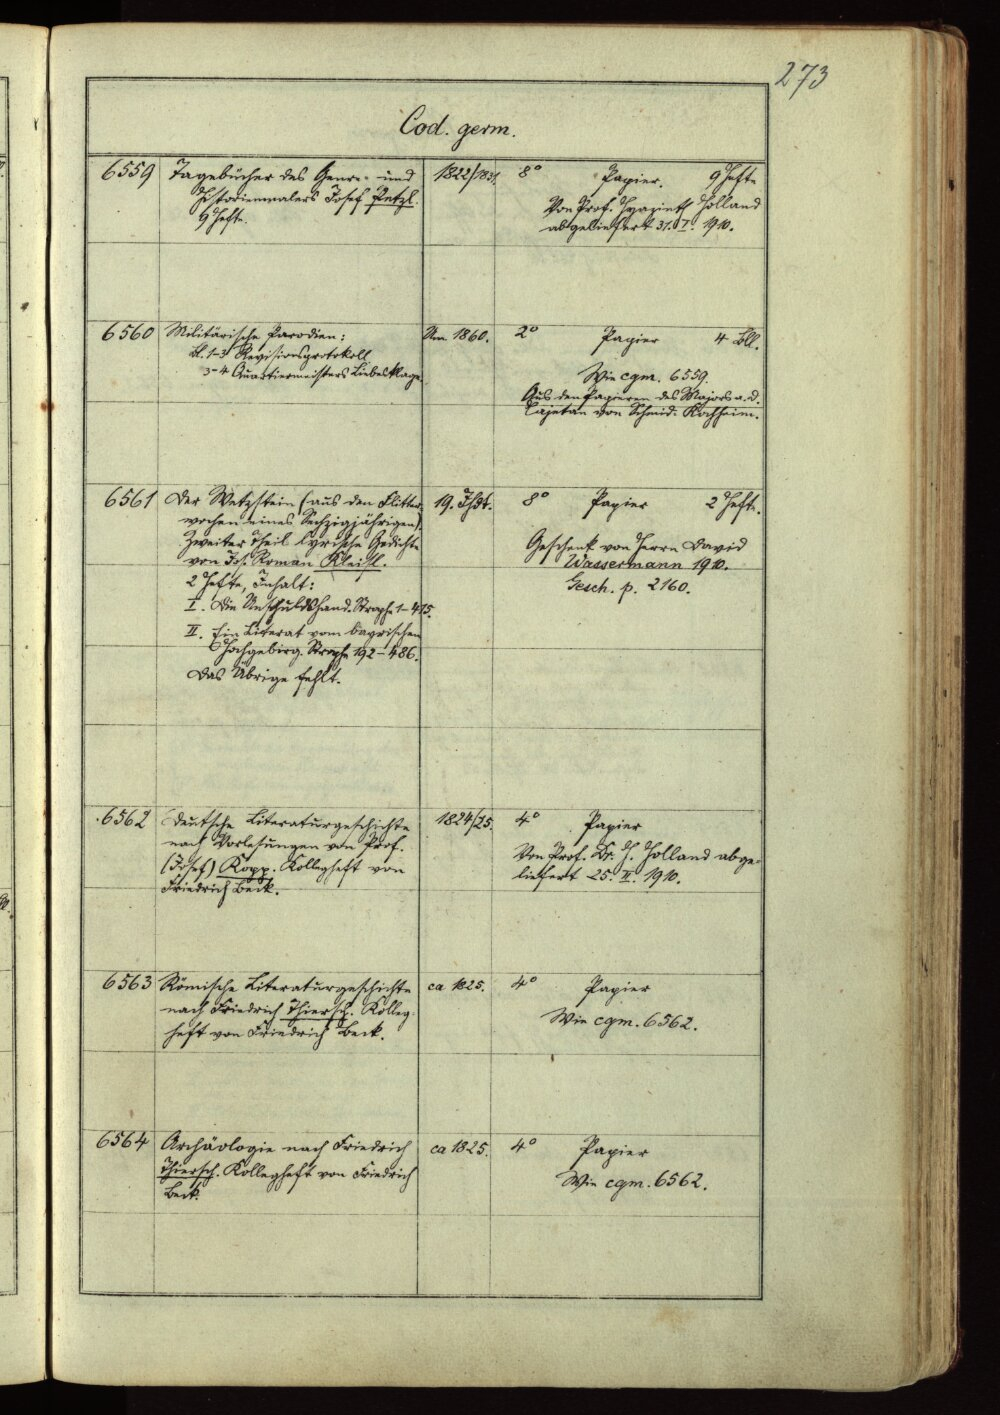 273
Cod. germ.
6559 Tagebücher des Genre- und 1822/1831. 8° Papier. 9 Hefte
Historienmalers Josef Petzl.
9 Hefte.
Von Prof. Hyazinth Holland
abgeliefert 31. I. 1910.
6560 Militärische Parodien: Um 1860. 2° Papier 4 Bll.
Bl. 1-3 Revisionsprotokoll
3-4 Quartiermeisters Liebesklage.
Wie cgm. 6559.
Aus den Papieren des Majors a. D.
Cajetan von Schmid-Kochheim.
6561 Der Wetzstein (aus den Flitter- 19. Jhdt. 8° Papier 2 Hefte.
wochen eines Sechzigjährigen).
Zweiter Theil lyrische Gedichte
von Jos. Roman Kleisl.
2 Hefte, Inhalt:
I. Die Unschuldshand. Strophe 1-475.
II. Ein Literat vom bayrischen
Hochgebirg. Strophe 192-486.
Das Übrige fehlt.
Geschenk von Herrn David
Wassermann 1910.
Gesch. p. 2160.
6562 Deutsche Literaturgeschichte 1824/25. 4° Papier
nach Vorlesungen von Prof.
(Josef) Kopp. Kollegheft von
Friedrich Beck.
Von Prof. Dr. H. Holland abge-
liefert 25. II. 1910.
6563 Römische Literaturgeschichte ca 1825. 4° Papier
nach Friedrich Thiersch. Kolleg-
heft von Friedrich Beck.
Wie cgm. 6562.
6564 Archäologie nach Friedrich ca 1825. 4° Papier
Thiersch. Kollegheft von Friedrich
Beck.
Wie cgm. 6562.